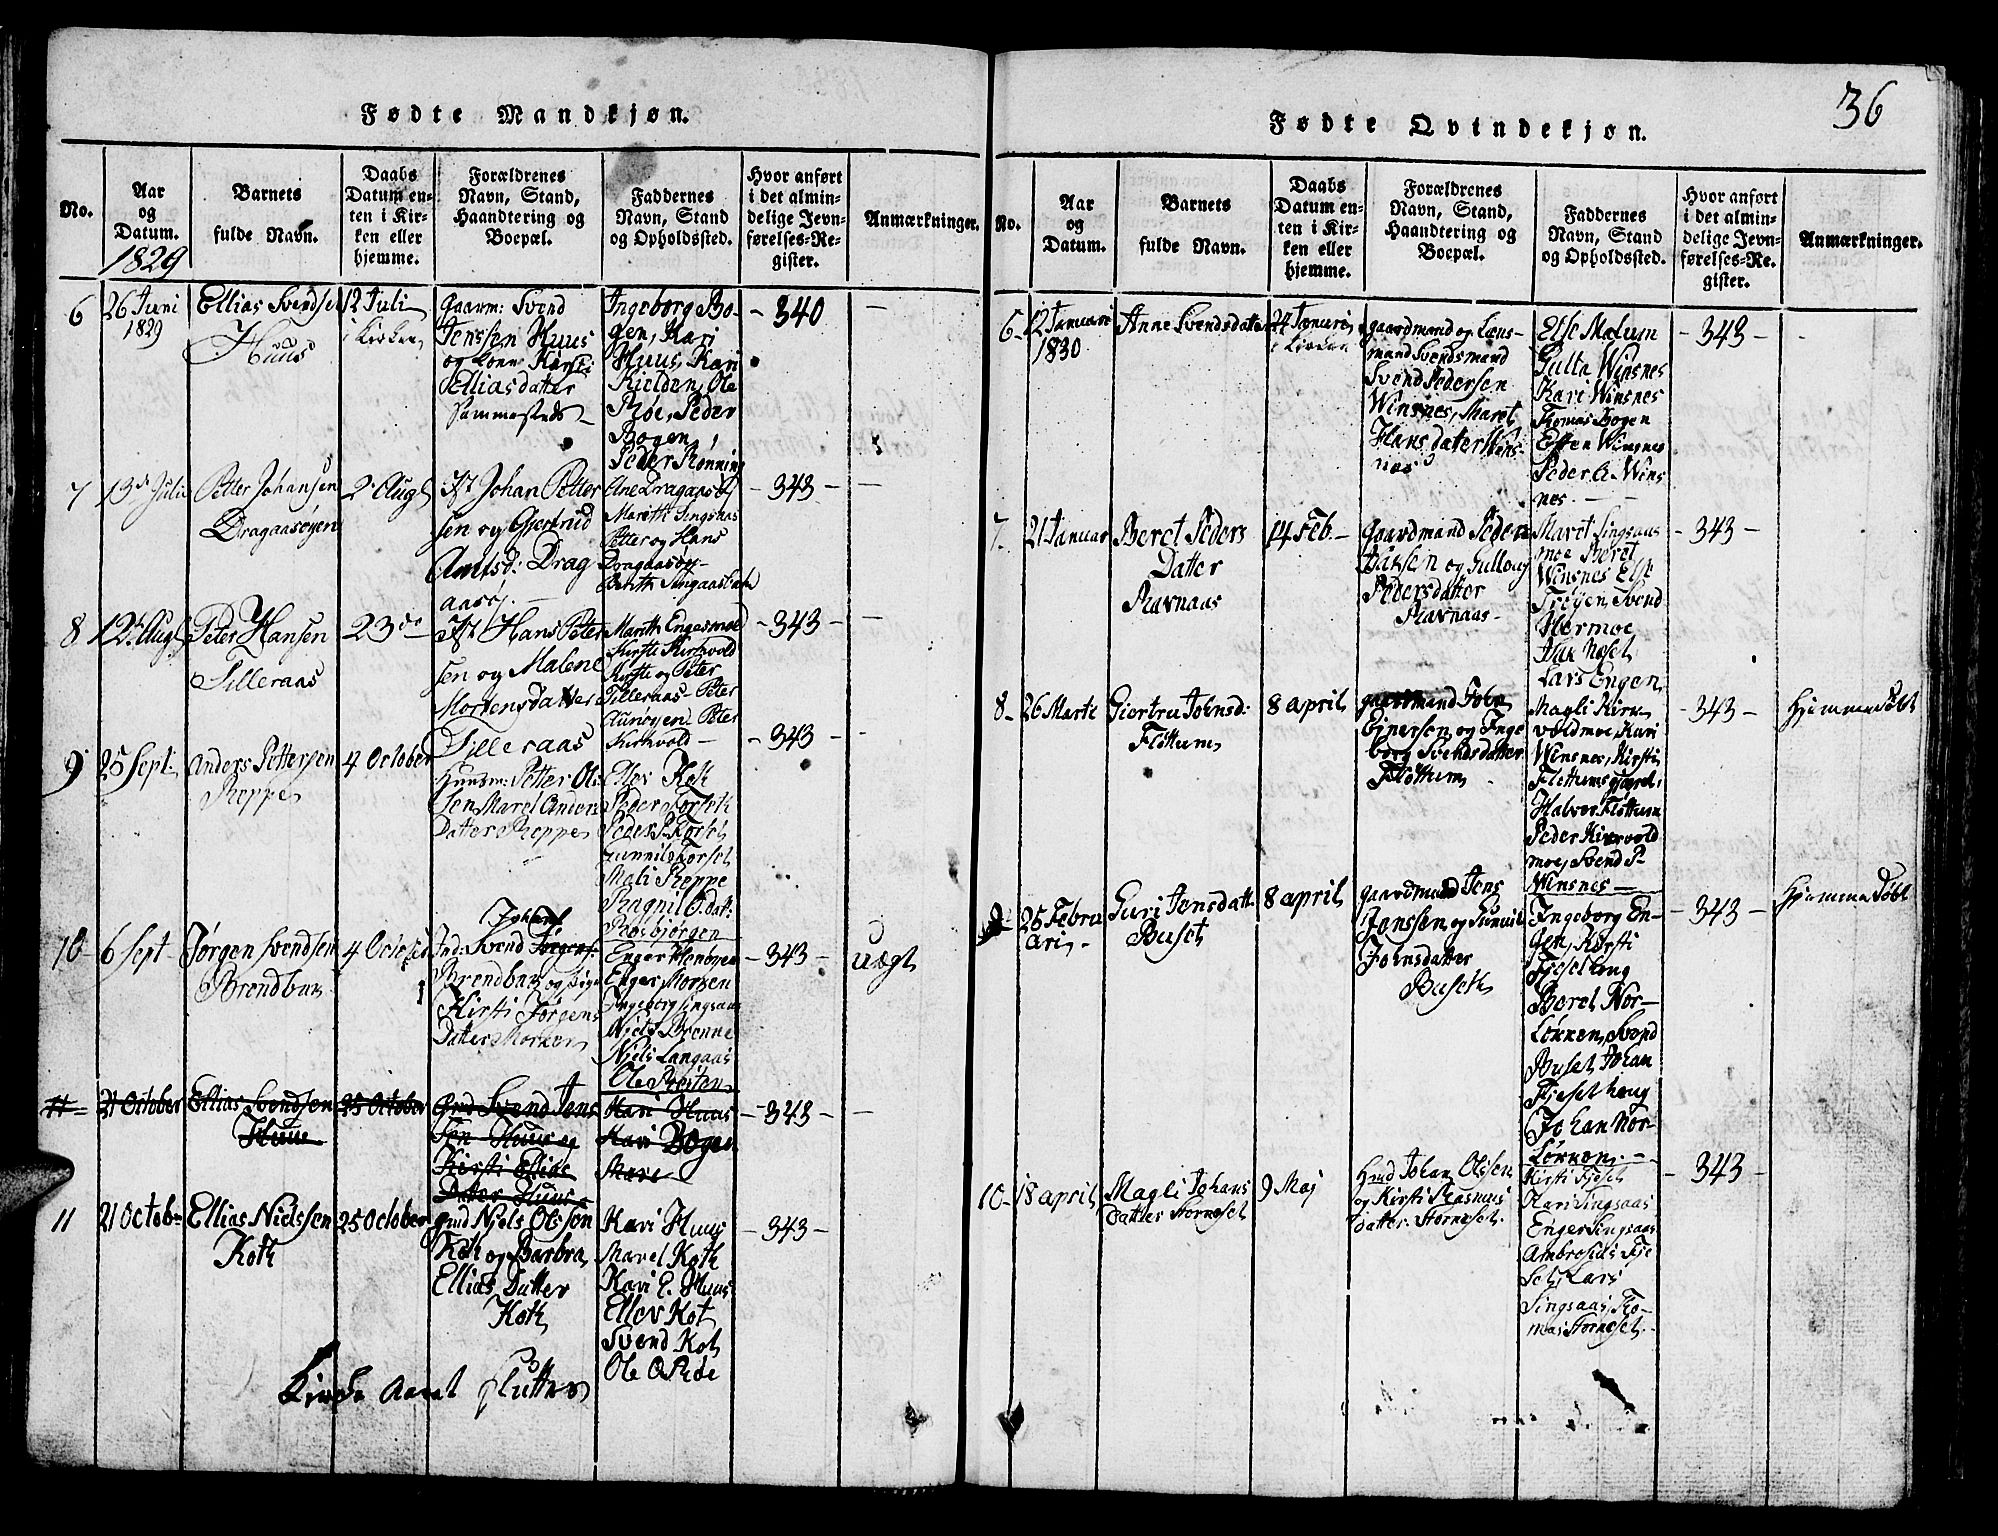 36
Fødte Mandkjøn.
No.
Aar
og
Datum.
1829
Barnets
fulde Navn.
Daabs
Datum en-
ten i Kir-
ken eller
hjemme.
Forældrenes
Navn, Stand,
Haandtering og
Boepæl.
Faddernes
Navn, Stand
og Opholdssted.
Hvor anført
i det almin-
delige Jevn-
førelses-Re-
gister.
Anmærkninger.
6
26 Juni
1829
Ellias Svendsen
Huus
12 Juli
i Kirken
Gaarm: Svend
Jenssen Huus
og kone Kirsti
Elliasdatter
Sammesteds
Ingeborg Bo-
gen, Kari
Huus, Kari
Kielden, Ole
Røe, Peder
Bogen,
Peder Rønning
- 340
7
13de Juli
Petter Johansen
Dragaasøyen
2 Augt
Johan Petter
sen og Gjertrud
Arntsd: Drag
aasøj.
Ane Dragaasøj
Marith Singsaas
Petter og Hans
Dragaasøy-
- 343 -
8
12 Augt
Peter Hansen
Tilleraas
23de
Hans Peter
sen og Malene
Mortensdatter
Tilleraas
Marith Engesmoe
Kirste Kirkvold
Kirste og Peter
Tilleraas Peter
Aunøyen Peter
Kirkvold
- 343 -
9
25 Sept.
Anders Pettersen
Reppe
4 October
Huusm: Petter Ol-
sen Maret Anders
Datter Reppe
Elles Kok
Peder Forsek
Peder P. Forset
Gunnil Forset
Mali Reppe
Ragnil O.datt:
Roesbjørgen
- 343 -
10
6 Sept
Jørgen Svendsen
Brendbur
4 October
Johans
Ind: Svend Jørgens:
Brendbur og Pige
Kirsti Jørgens
Datter Morken
Enger Morken
Ingeborg Singsaas
Niels Brenne
Niels Langaas
Ole Reiten
- 343 -
Uægt
11 -
21 October
Ellias Svendsen
Huus
25 October
Gmd Svend Jens
sen Huus og
Kirsti Ellias
Datter Huus
Kari Huus
Kari Bogen
Mare
- 343 -
11
21 Octobr
Ellias Nielssen
Koth
25 October
Gmd Niels Olsson
Koth og Barbra
Ellias Datter
Koth
Kari Huus
Marel Koth
Kari E. Huus
Ellev Kot
Svend Kot
Ole O Røe
- 343 -
Kirke Aaret Slutter
Fødte Qvindekjøn.
No.
Aar
og
Datum.
Barnets
fulde Navn.
Daabs
Datum en-
ten i Kir-
ken eller
hjemme.
Forældrenes
Navn, Stand,
Haandtering og
Boepæl.
Faddernes
Navn, Stand
og Opholdssted.
Hvor anført
i det almin-
delige Jevn-
førelses-Re-
gister.
Anmærkninger.
6
12 Januari
1830
Anne Svendsdatter
24 Januri
i Kirken
gaardmand og Læns-
mand Svendsmand
Svend Pedersen
Winsnes, Maret
Hansdatter Wins-
nes
Else Malum
Gulla Winsnes
Kari Winsnes
Thomas Bogen
Effen Winsnes
Peder A. Wins
nes.
- 343 -
7
21 Januar
Beret Peders
Datter
Ravnaas
14 Feb.
Gaardmand Peder
Isaksen og Gulloug
Pedersdatter
Ravnaas
Maret Singsaas
moe Beret
Winsnes Else
Trøyen, Svend
Hermoe
Isak Moset
Lars Engen
- 343 -
8
26 Marti
Giertru Johnsd:
Flottum
8 april
gaardmand John
Einersen og Inge
borg Svendsdatter
Flottum
Magli Kirk
voldmoe, Kari
Winsnes, Kirsti
Flottums
Halvor Flottum
Peder Kirkvold
moe, Svend P.
Winsnes
- 343 -
Hjemme Døbt
9
25 Febru
ari
Guri Jensdatt
Buset
8 april
gaardmand Jens
Jonssen og Gunnil
Johnsdatter
Busek
Ingeborg En-
gen, Kirsti
Fjeset houg
Beret Nor-
Løkken, Svend
Buset, Johan
Fjeset houg
Johan Nor-
Løkken.
- 343 -
Hjemme Døbt
10
18 april
Magli Johans
Datter Storneset
9 Maj
Hmd Johan Olssen
og Kirsti Rasmus
datter: Storneset.
Kirsti Fjeset
Kari Singsaas
Enger Singsaas
Ambrosius Fje
set, Lars
Singsaas, Tho-
mas Storneset.
- 343 -